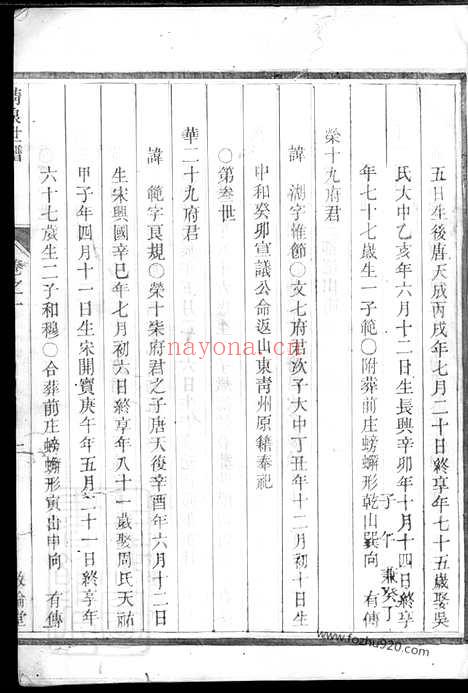 五日生後唐天成丙戌年七月二十日終享年七十五歲娶吳
氏大中乙亥年六月十二日生長興辛卯年十月十四日終享
年七十七歲生一子範〇附葬前庄螃蠏形乾山巽向 有傳
子午兼癸丁
榮十九府君
諱 湖字惟節〇文七府君次子大中丁丑年十二月初十日生
中和癸卯宣議公命返山東靑州原籍奉祀
〇第叁世
華二十九府君
諱 範字良規〇榮十柒府君之子唐天後辛酉年六月十二日
生宋興國辛巳年七月初六日終享年八十一歲娶周氏天祐
甲子年四月十一日生宋開寶庚午年五月二十一日終享年
六十七歲生二子和穆〇合葬前庄螃蠏形寅山申向 有傳
世譜
卷之一
二
敦倫堂
nayona.cn
www.fozhu920.com